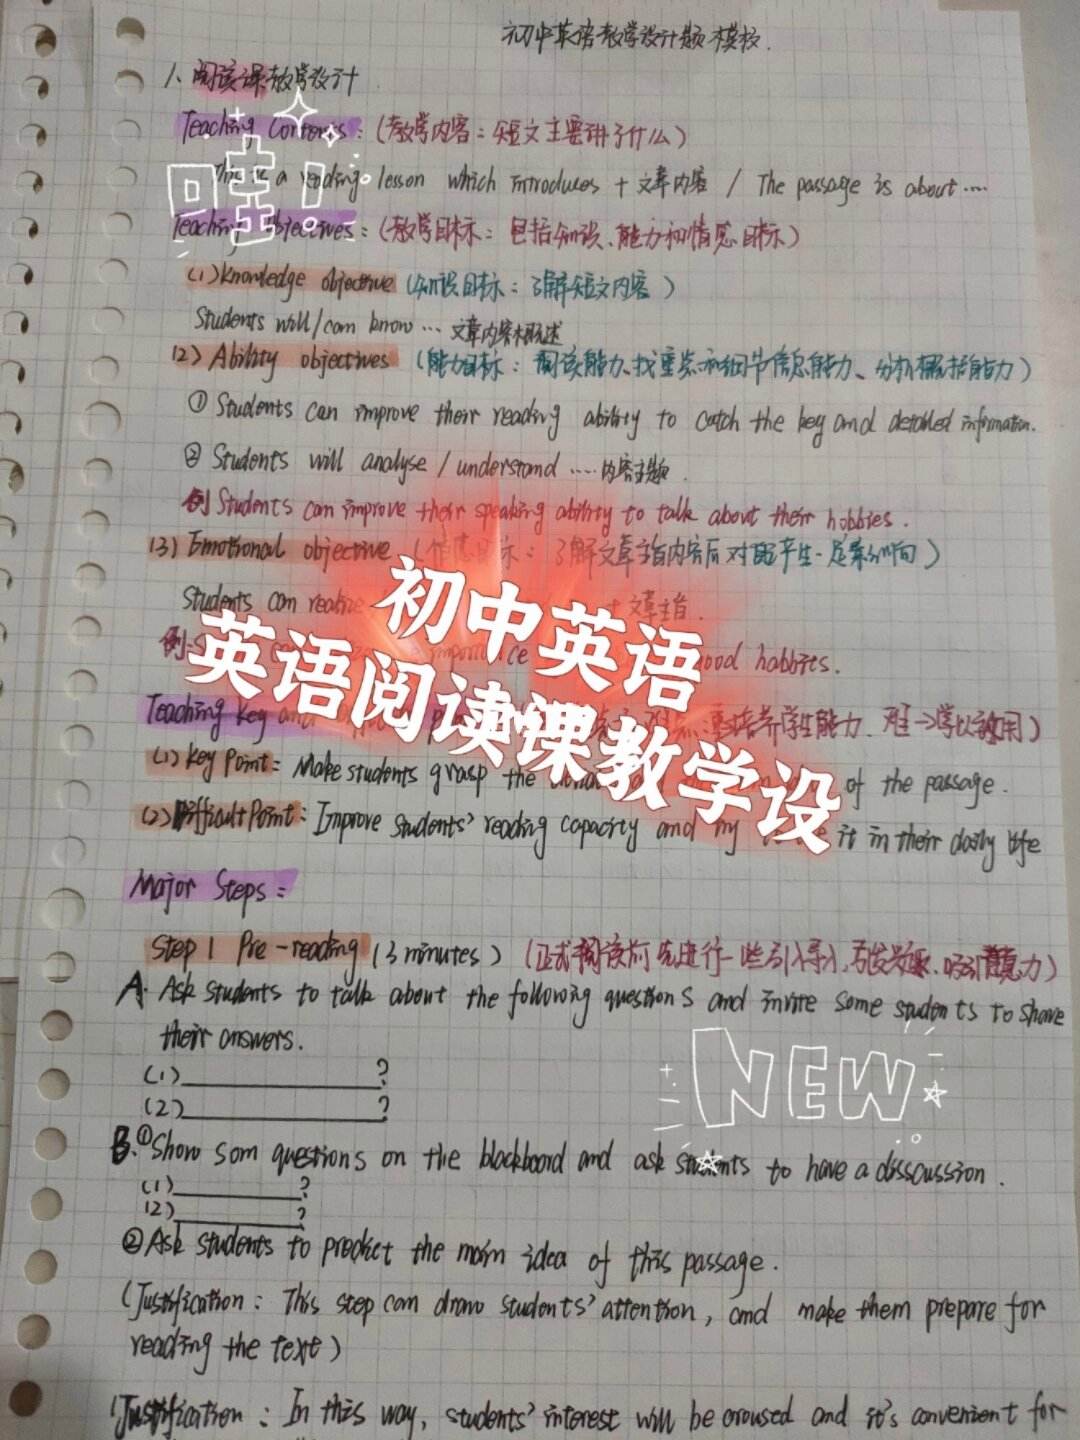 初中英语教学设计题模板.
1. 阅读课教学设计
Teaching Contents: (教学内容: 短文主要讲了什么)
哇!
This is a reading lesson which introduces + 文章内容 / The passage is about ...
Teaching Objectives: (教学目标: 包括知识、能力和情感目标)
(1) Knowledge objective (知识目标: 了解短文内容)
Students will/can know ... 文章内容概述
(2) Ability objectives (能力目标: 阅读能力、找重点和细节信息能力、分析概括能力)
① Students can improve their reading ability to catch the key and detailed information.
② Students will analyse / understand ..... 内容主题.
例 Students can improve their speaking ability to talk about their hobbies.
(3) Emotional objective (情感目标: 了解文章主旨内容后对 产生一定影响)
Students can realize + 文章主旨.
初中英语
英语阅读课教学设
例: importance good habbits.
Teaching Key and 培养学生能力、难→学以致用)
(1) Key Point: Make students grasp the of the passage.
(2) Difficult Point: Improve students' reading capacity and it in their daily life
Major Steps:
Step 1 Pre-reading (3 minutes) (正式阅读前先进行一些引导, 引发兴趣、吸引注意力)
A. Ask students to talk about the following questions and invite some students to share
their answers.
(1)____________?
(2)____________?
NEW
B. ① Show som questions on the blackboard and ask students to have a disscussion.
(1)________?
(2)________?
② Ask students to predict the main idea of this passage.
(Justification: This step can draw students' attention, and make them prepare for
reading the text)
(Justification: In this way, students' interest will be aroused and it's convenient for